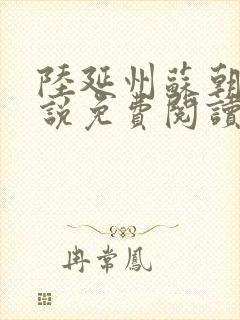 陸延州蘇朝
說免費閱讀
冉常鳳